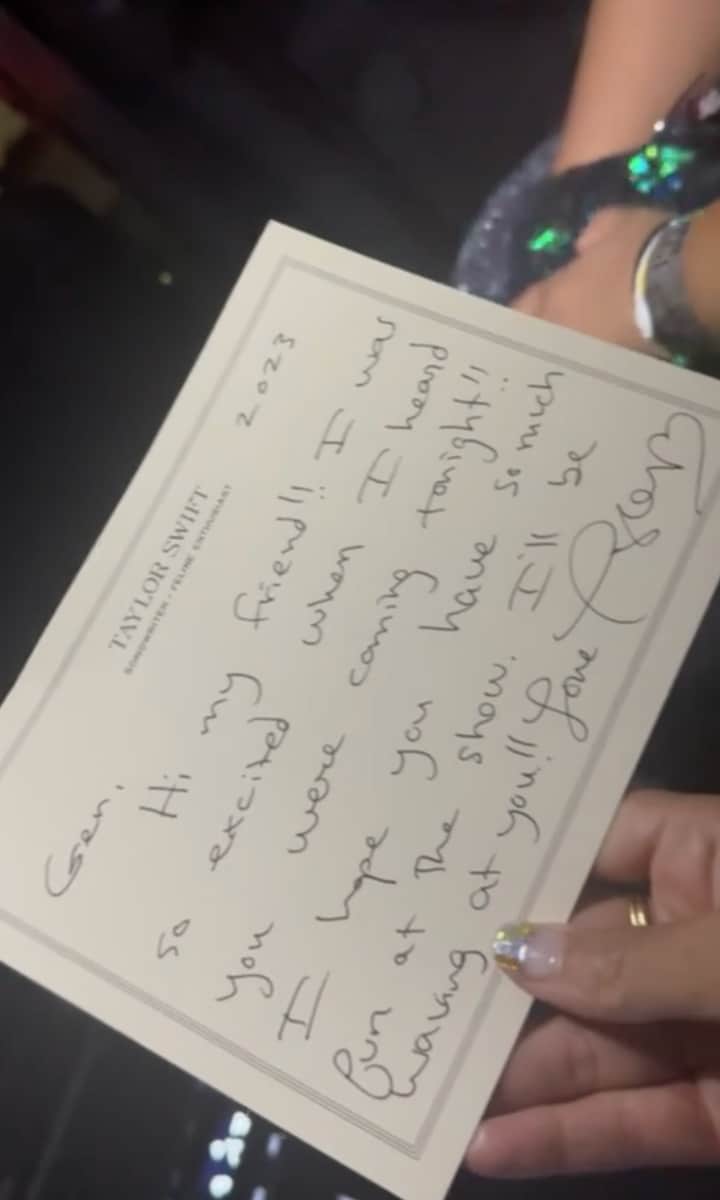 TAYLOR SWIFT
SONGWRITER • FELINE ENTHUSIAST
2023
Gen,
Hi, my friend!! I was
so excited when I heard
you were coming tonight!!
I hope you have so much
fun at the show. I'll be
waving at you!! Love